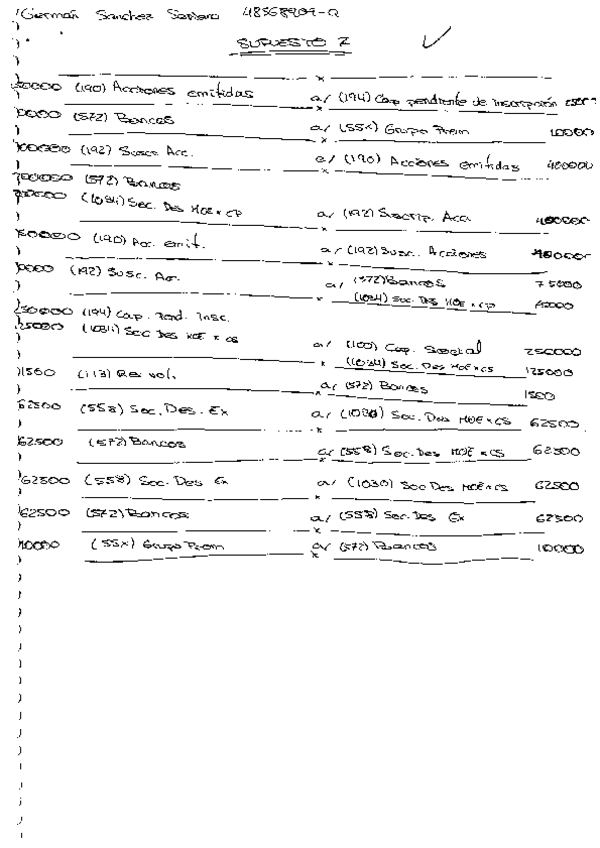 Germán Sanchez Soriano 48568909-Q
SUPUESTO 2
(190) Acciones emitidas a/ (194) Cap pendiente de inscripción
(572) Bancos a/ (55x) Grupo Prem 10000
(192) Suscr Acc. a/ (190) Acciones emitidas 400000
(572) Bancos
(1034) Soc. Des NOE x CP a/ (192) Suscrip. Acc 400000
(190) Acc. emit. a/ (192) Susc. Acciones
(192) Susc. Acc. a/ (572) Bancos 75000
(1034) Soc. Des NOE x CP
(194) Cap. Pend. Insc.
(1034) Soc Des NOE x CS a/ (100) Cap. Social 250000
(1034) Soc. Des NOE x CS 125000
1500 (113) Res vol. a/ (572) Bancos 1500
62500 (558) Soc. Des. Ex a/ (1030) Soc. Des NOE x CS 62500
62500 (572) Bancos a/ (558) Soc. Des NOE x CS 62500
62500 (558) Soc. Des Ex a/ (1030) Soc Des NOE x CS 62500
62500 (572) Bancos a/ (558) Soc. Des Ex 62500
10000 (55x) Grupo Prem a/ (572) Bancos 10000